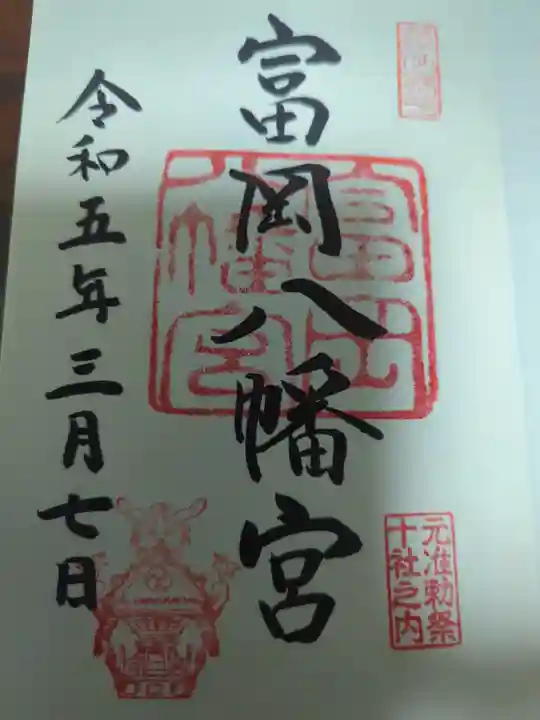 富岡八幡宮
富岡八幡宮
元准勅祭
十社之内
令和五年三月七日